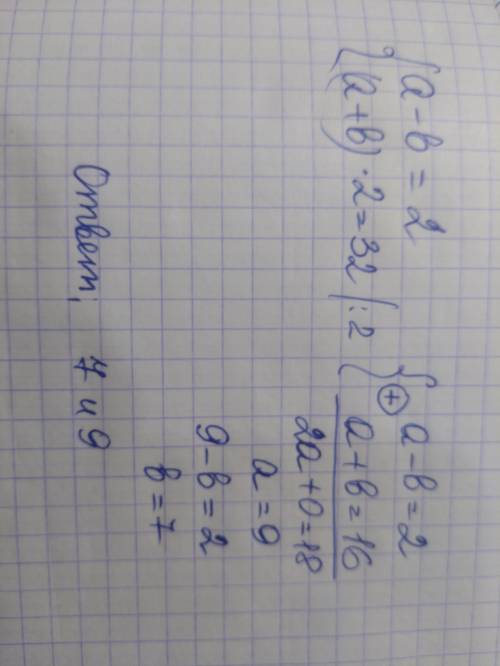 { a - b = 2
(a + b) · 2 = 32 | : 2
{ a - b = 2
⊕ a + b = 16
2a + 0 = 18
a = 9
9 - b = 2
b = 7
Ответ: 7 и 9